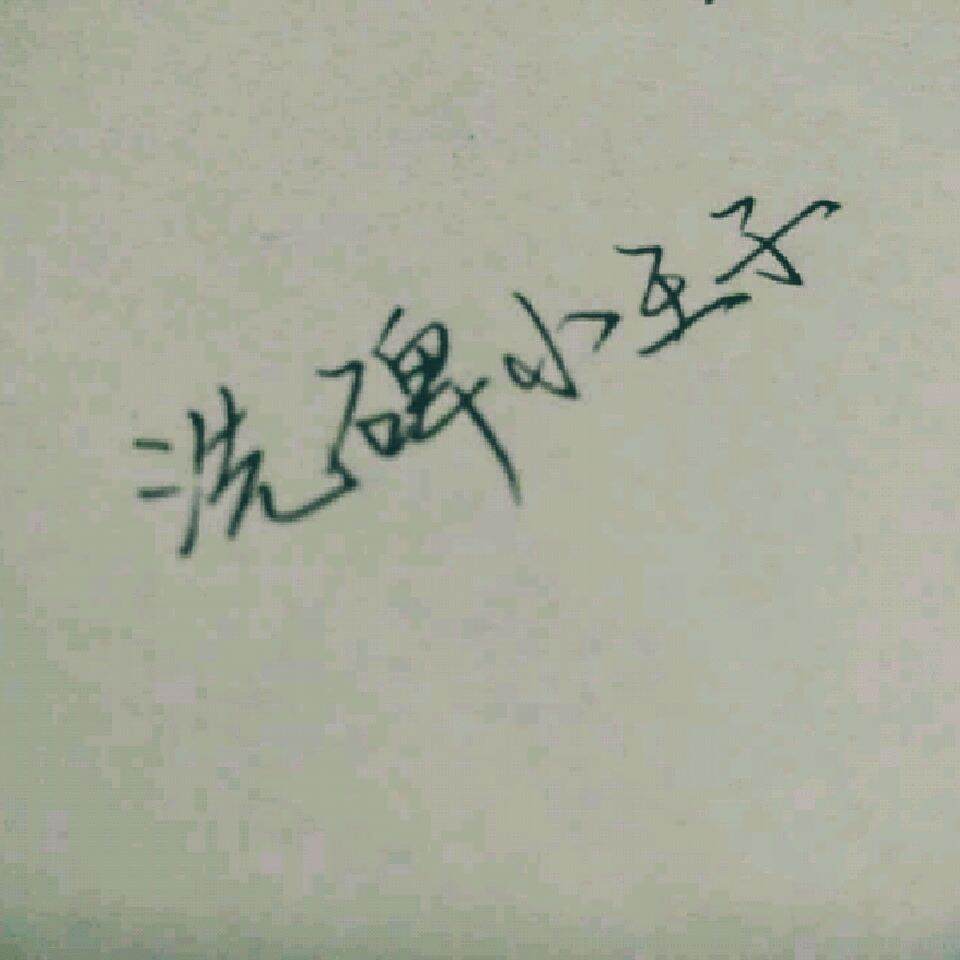 洗碑小王子